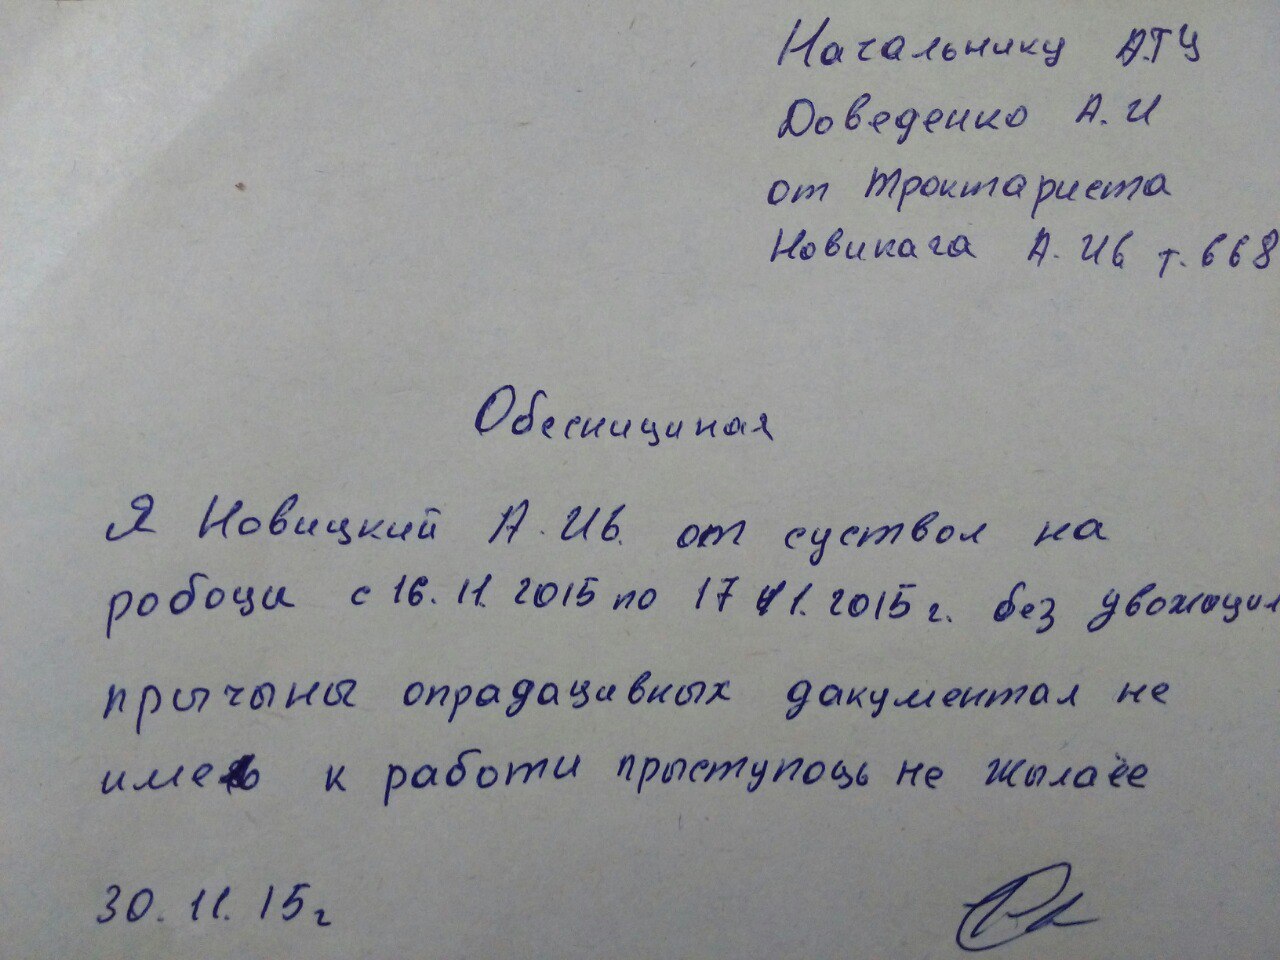 Начальнику А.ТЦ
Доведенко А.И
от троктариста
Новикага А.Ив т.668
Обеснициная
Я Новицкий А.Ив. от суствол на
робоци с 16.11.2015 по 17 11.2015г. без
прычыны опрадацивных дакументал не
имею к работи прыступоць не жылаее
30.11.15г